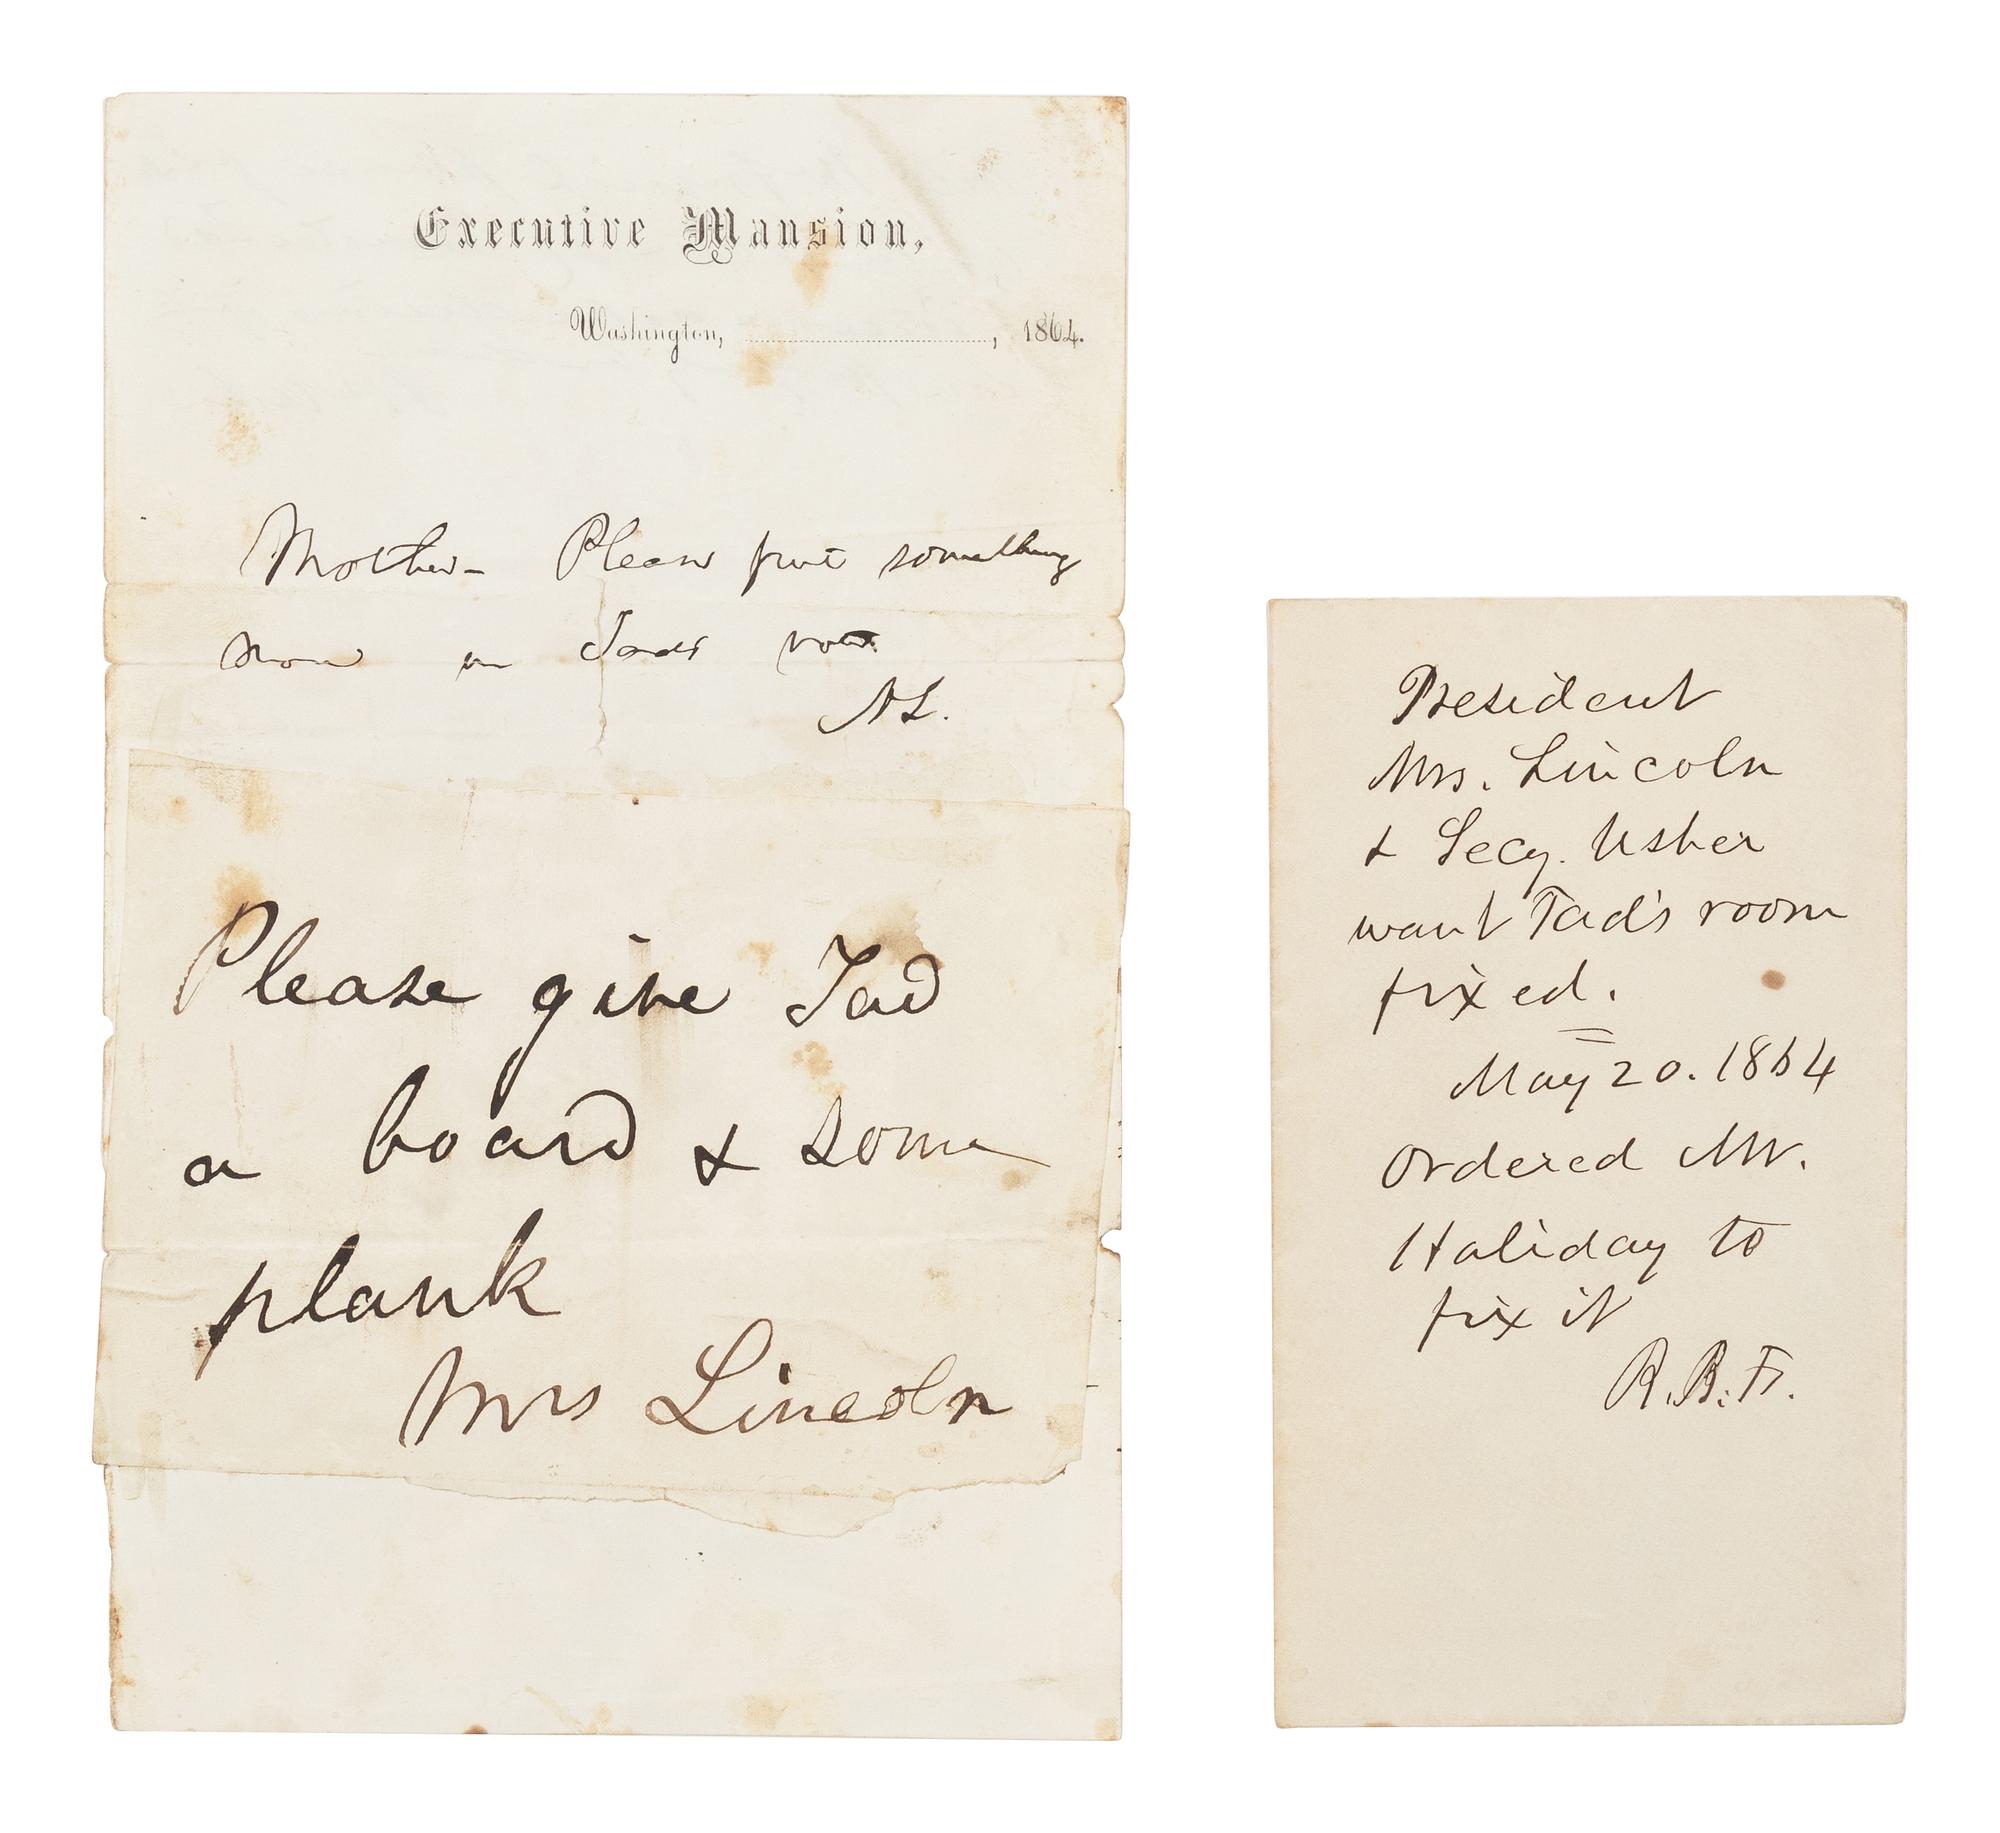 Executive Mansion,
Washington, , 1864.
Mother - Please put something
more in Tad's
A L.
Please give Tad
a board & some
plank
Mrs Lincoln
President
Mrs. Lincoln
& Secy. Usher
want Tad's room
fixed.
May 20. 1864
Ordered Mr.
Haliday to
fix it
B.B.F.